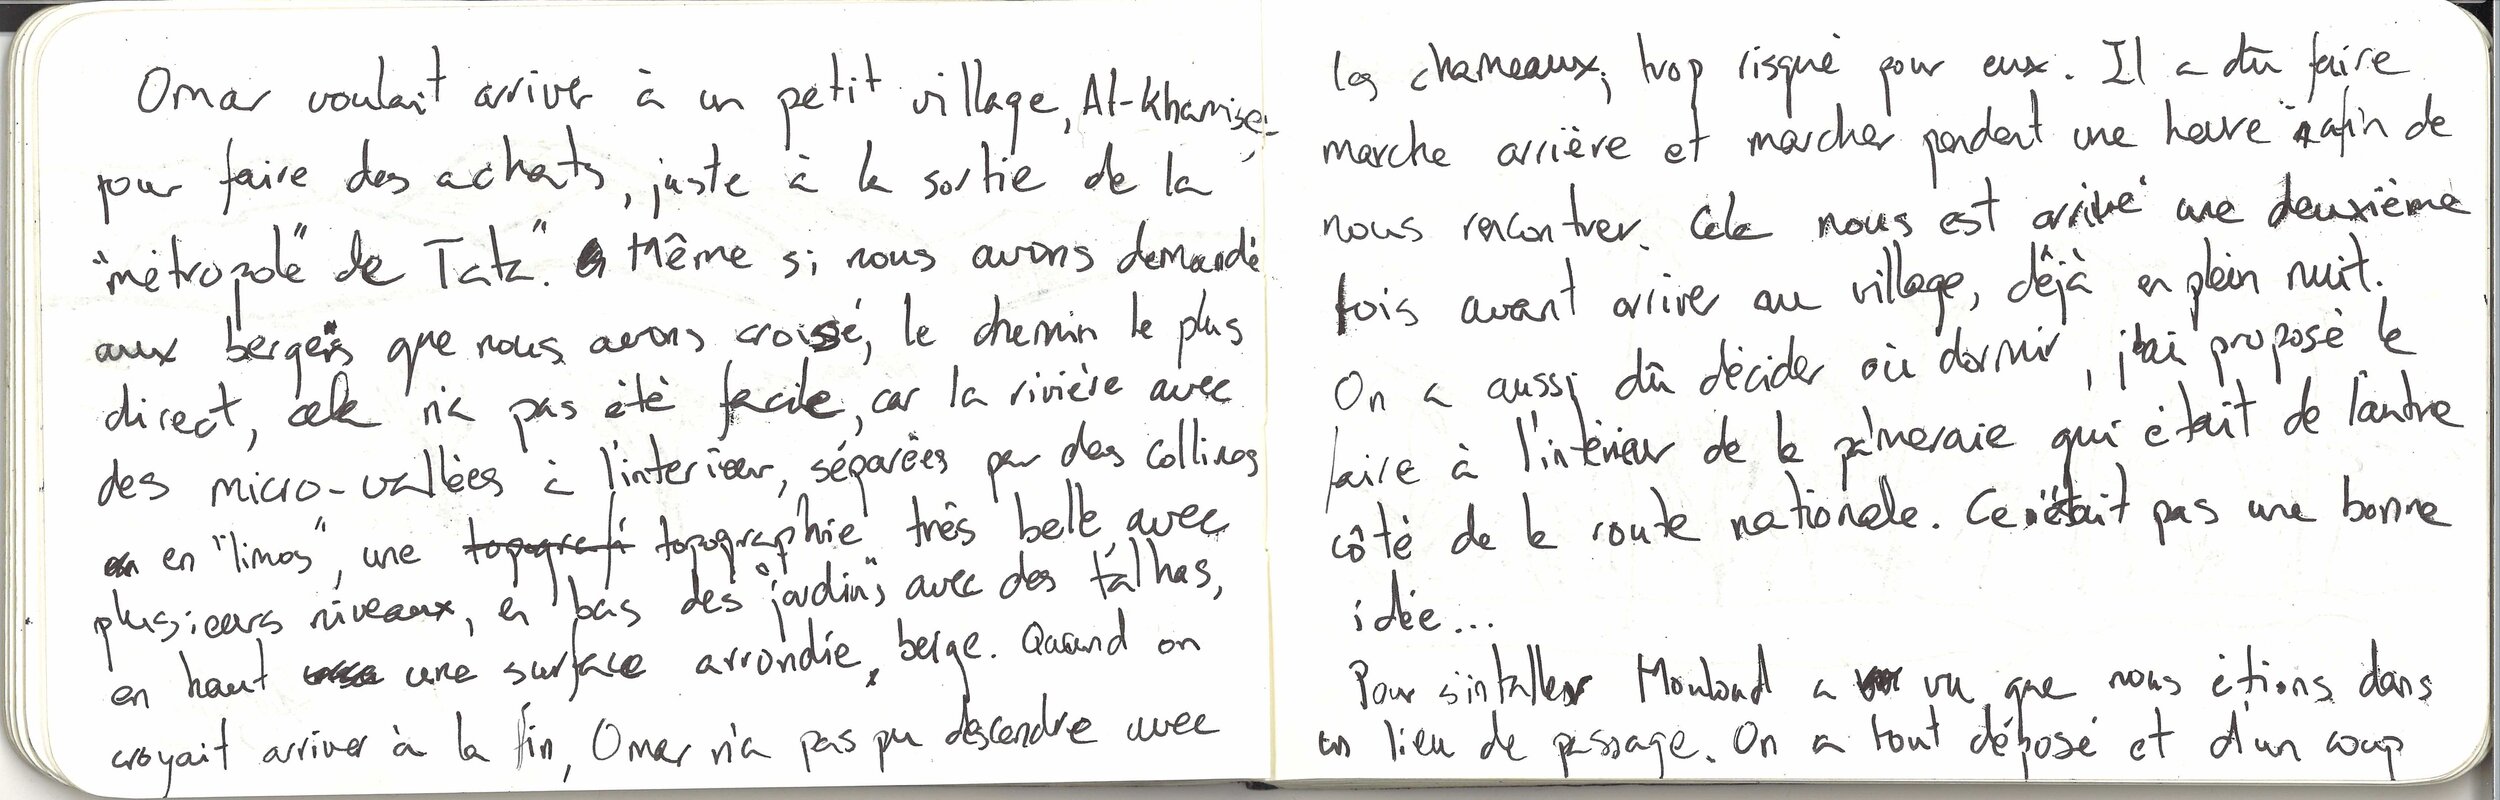 Omar voulait arriver à un petit village, At-Khamise-
pour faire des achats, juste à la sortie de la
"métropole" de Tata". Même si nous avons demandé
aux bergers que nous avons croisé, le chemin le plus
direct, cela n'a pas été facile, car la rivière avec
des micro-vallées à l'interieur, séparées par des collines
en "limos", une topografi topographie très belle avec
plusieurs niveaux, en bas des "jardins" avec des talhas,
en haut une surface arrondie, beige. Quand on
croyait arriver à la fin, Omar n'a pas pu descendre avec
les chameaux, trop risqué pour eux. Il a dû faire
marche arrière et marcher pendant une heure afin de
nous rencontrer. Cela nous est arrivé une deuxième
fois avant arriver au village, déjà en plein nuit.
On a aussi dû décider où dormir, j'ai proposé le
faire à l'intérieur de la palmeraie qui était de l'autre
côté de la route nationale. Ce n'était pas une bonne
idée...
Pour s'intaller Mouloud a vu que nous étions dans
un lieu de passage. On a tout déposé et d'un coup